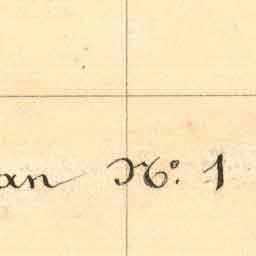 an Nº. 1